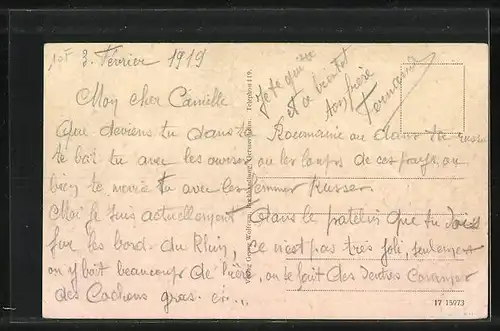 3. Février 1919
Mon cher Camille
Que deviens tu dans ta Roumanie ou dans ta
te bat tu avec les ourses ou les loups de ces pays, ou
bien te marie tu avec les femmes Russes.
Moi je suis actuellement dans le patelin que tu vois
sur les bords du Rhin, ce n'est pas très joli, seulement
on y boit beaucoup de bière, on se fait des ventres comme
des Cochons gras. et...
Je te quitte
et a bientot
ton frère
Fernand
Verlag Georg Wolfrum, Germersheim. Telephon 119.
17 15973